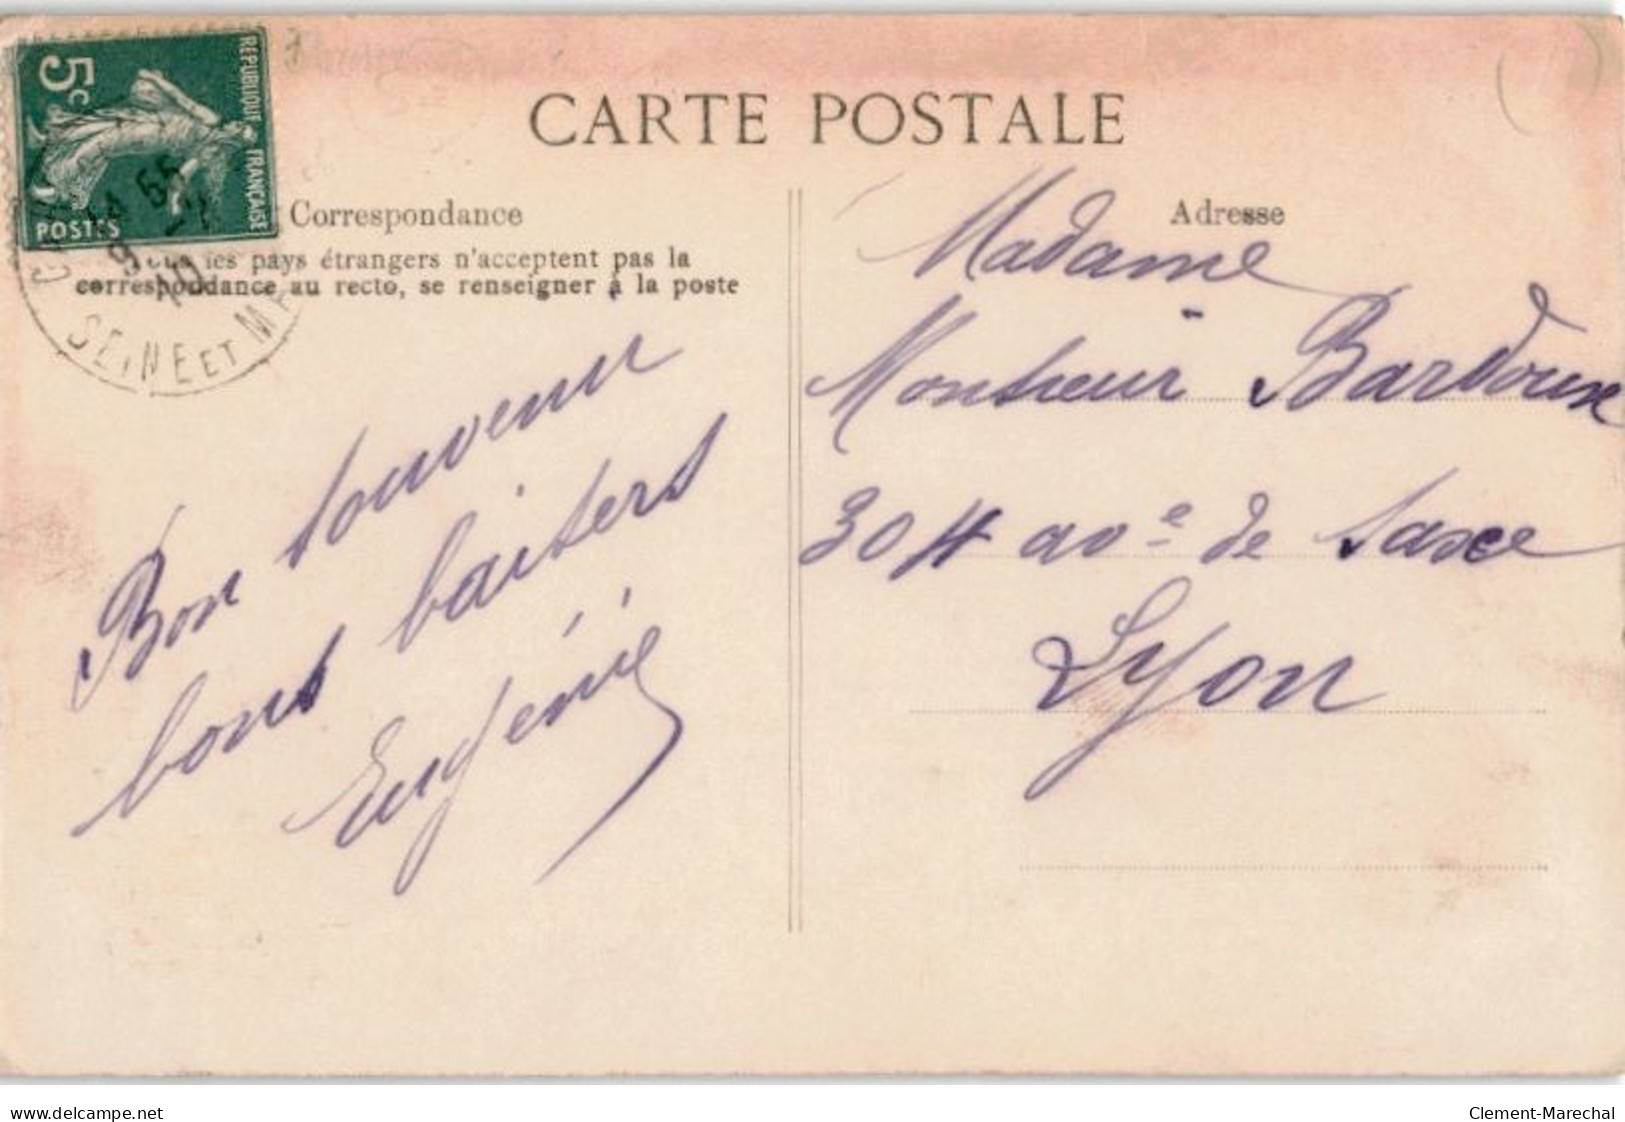 RÉPUBLIQUE FRANÇAISE
5c
POSTES
SEINE ET M
CARTE POSTALE
Correspondance
les pays étrangers n'acceptent pas la
correspondance au recto, se renseigner à la poste
Bon souvenir
bons baisers
Eugénie
Adresse
Madame
Monsieur Bardoux
304 ave de Saxe
Lyon
delcampe.net
Clement-Marechal